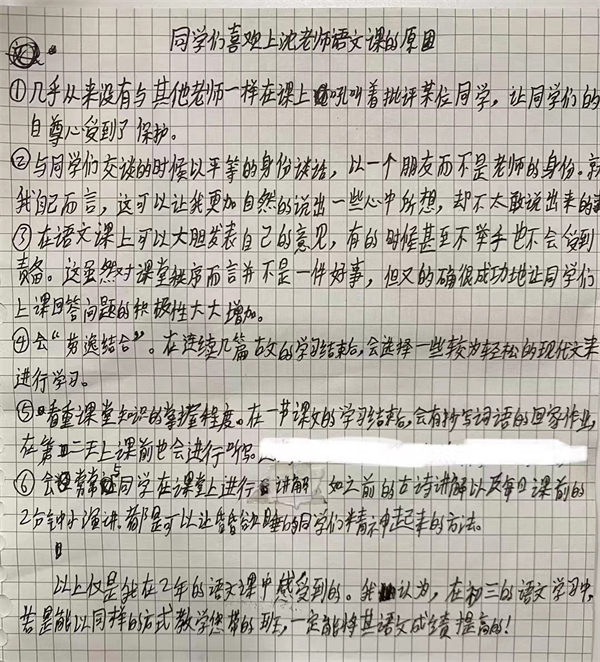 同学们喜欢上沈老师语文课的原因
①几乎从来没有与其他老师一样在课上吼叫着批评某位同学，让同学们的
自尊心受到了保护。
②与同学们交谈的时候以平等的身份谈话，以一个朋友而不是老师的身份。就
我自己而言，这可以让我更加自然的说出一些心中所想，却不太敢说出来的
③在语文课上可以大胆发表自己的意见，有的时候甚至不举手也不会受到
责备。这虽然对课堂秩序而言并不是一件好事，但又的确很成功地让同学们
上课回答问题的积极性大大增加。
④会“劳逸结合”。在连续几篇古文的学习结束后，会选择一些较为轻松的现代文来
进行学习。
⑤看重课堂知识的掌握程度。在一节课文的学习结束后，会有抄写词语的回家作业，
在第二天上课前也会进行听写
⑥会常让同学在课堂上进行讲解 如之前的古诗讲解以及每日课前的
2分钟小演讲。都是可以让昏昏欲睡的同学们精神起来的方法。
以上仅是我在2年的语文课中感受到的。我认为，在初三的语文学习中，
若是能以同样的方式教学您带的班，一定能将其语文成绩提高的！